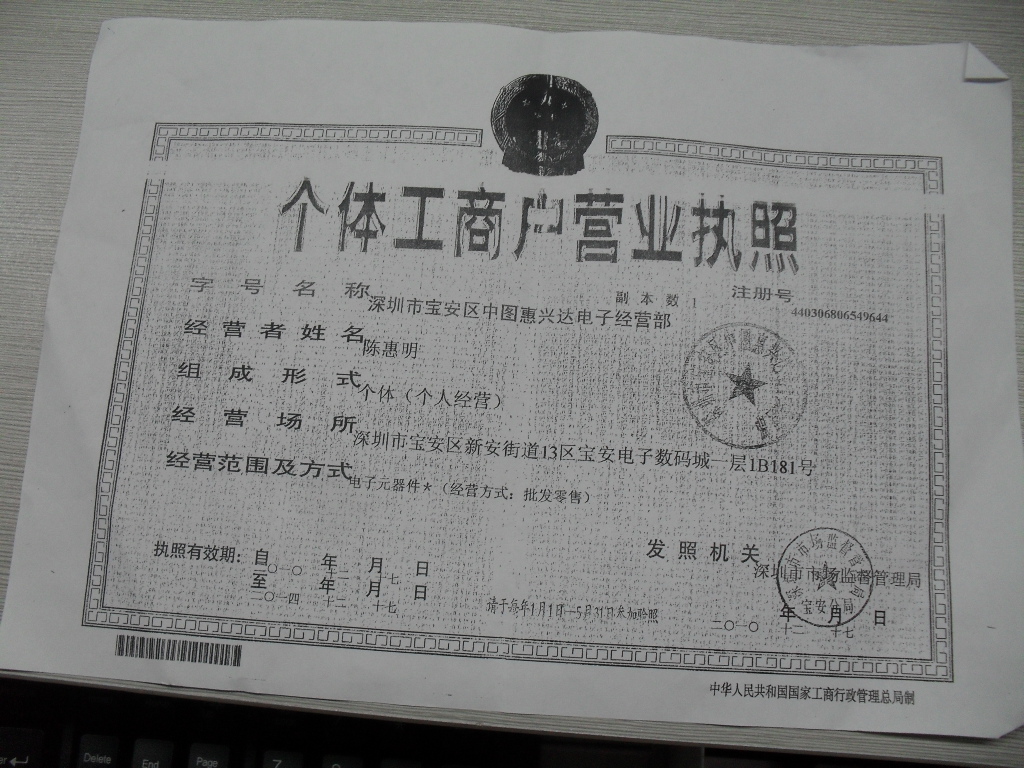 个体工商户营业执照
副本数 1 注册号 440306806549644
字号名称 深圳市宝安区中图惠兴达电子经营部
经营者姓名 陈惠明
组成形式 个体（个人经营）
经营场所 深圳市宝安区新安街道13区宝安电子数码城一层1B181号
经营范围及方式 电子元器件*（经营方式：批发零售）
发照机关 深圳市市场监督管理局
宝安分局
执照有效期：自二〇一〇年十二月十七日
至二〇一四年十二月十七日
请于每年1月1日—5月31日参加验照
二〇一〇年十二月十七日
中华人民共和国国家工商行政管理总局制
Delete
End
Page
7